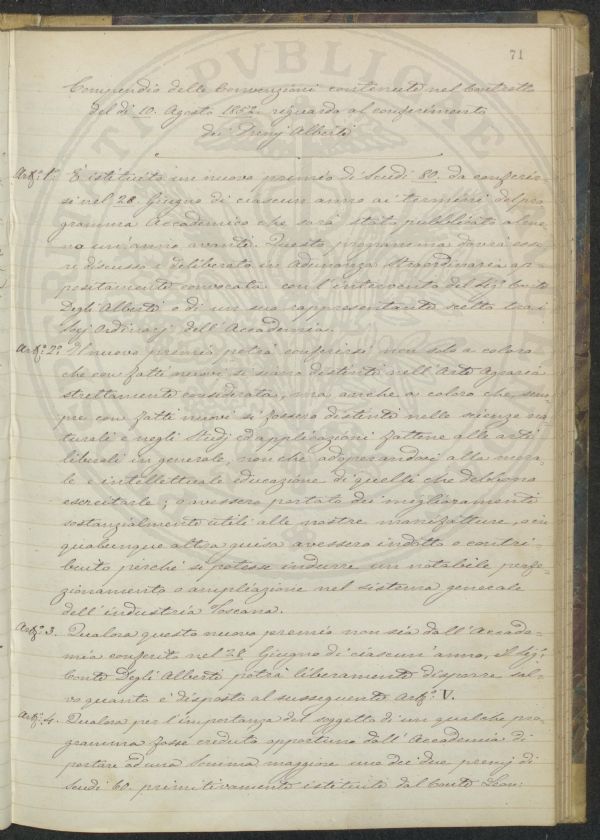 71
Compendio delle Convenzioni contenute nel Contratto
del dì 10. Agosto 1852. riguardo al conferimento
dei Premj Alberti
Artº. 1º. È istituito un nuovo premio di Scudi 80. da conferir=
si nel 28. Giugno di ciascun anno ai termini del pro=
gramma Accademico che sarà stato pubblicato alme=
no un'anno avanti. Questo programma dovrà esse=
re discusso e deliberato in Adunanza Straordinaria ap=
positamente convocata con l'intervento del Sigr. Conte
Degli Alberti o di un suo rappresentante scelto tra i
Socj Ordinarj dell'Accademia.
Artº. 2º. Il nuovo premio potrà conferirsi non solo a coloro
che con fatti nuovi si siano distinti nell'Arte Agraria
strettamente considerata, ma anche a coloro che, sem=
pre con fatti nuovi si fossero distinti nelle scienze na=
turali e negli Studj ed applicazioni fattene alle arti
liberali in generale, non che adoperandosi alla mora=
le e intellettuale educazione di quelli che debbono
esercitarle; o avessero portato dei miglioramenti
sostanzialmente utili alle nostre manifatture, o in
qualunque altra guisa avessero indotto o contri=
buito perchè si potesse indurre un notabile perfe=
zionamento o ampliazione nel sistema generale
dell'industria Toscana.
Artº. 3. Qualora questo nuovo premio non sia dall'Accade=
mia conferito nel 28. Giugno di ciascun anno, il Sigr.
Conte Degli Alberti potrà liberamente disporre sal=
vo quanto è disposto al susseguente Artº. V.
Artº. 4. Qualora per l'importanza del soggetto di un qualche pro=
gramma fosse creduto opportuno dall'Accademia di
portare ad una Somma maggiore uno dei due premj di
Scudi 60. primitivamente istituiti dal Conte Leon: